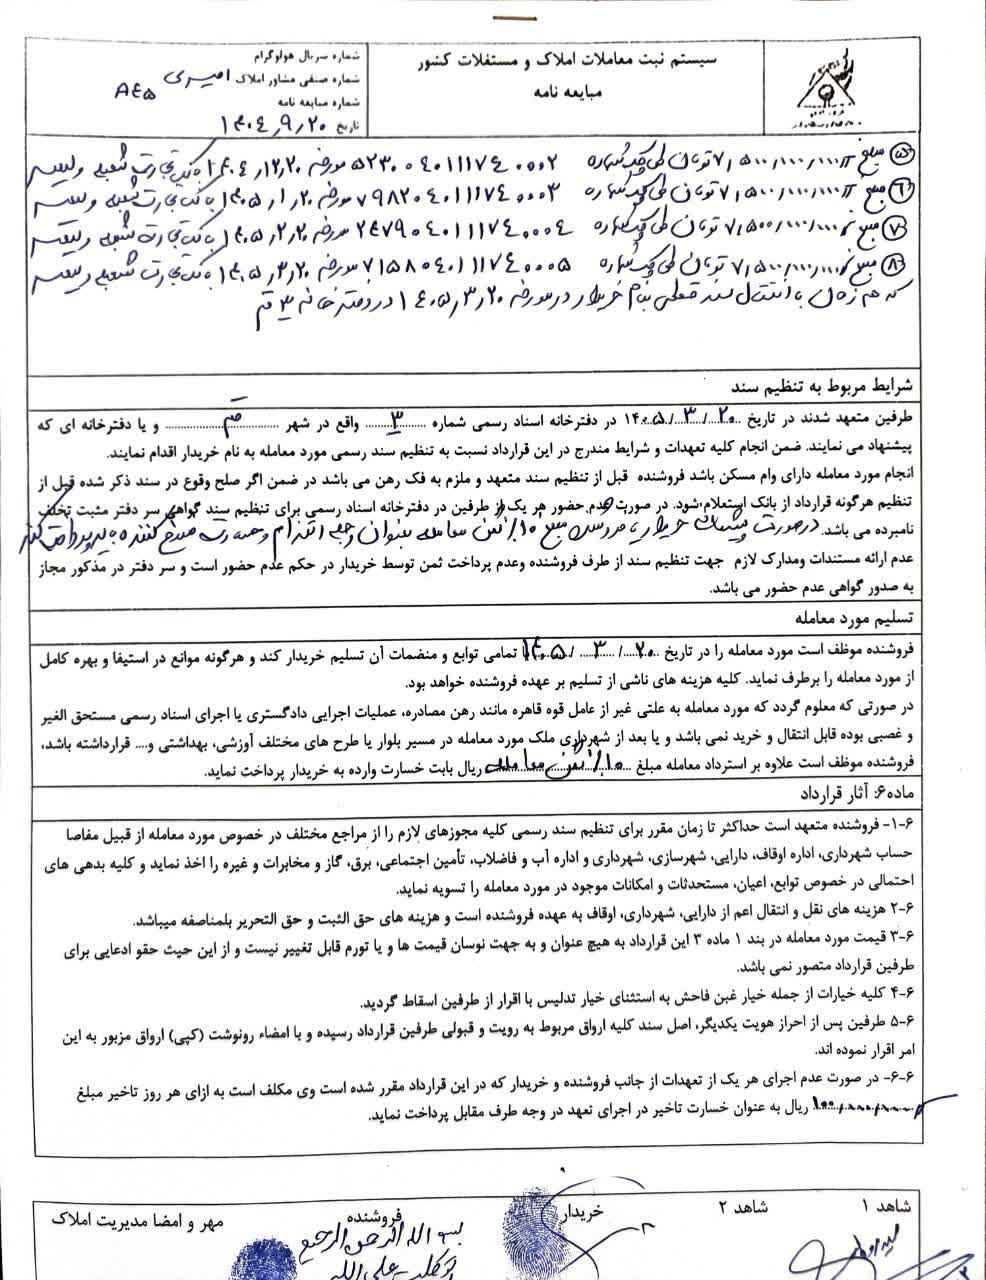 سیستم ثبت معاملات املاک و مستغلات کشور
مبایعه نامه
شماره سریال هولوگرام
شماره صنفی مشاور املاک امیری
شماره مبایعه نامه ۸۴۵
تاریخ ۱۴۰۴٫۹٫۲۰
۵) مبلغ ۷٫۵۰۰٫۰۰۰٫۰۰۰ تومان طی چک شماره ۵۲۳۰۰۴۰۱۱۱۷۴۰۰۰۲ مورخه ۱۴۰۴٫۱۲٫۲۰ بانک تجارت شعبه
۶) مبلغ ۷٫۵۰۰٫۰۰۰٫۰۰۰ تومان طی چک شماره ۷۹۸۲۰۴۰۱۱۱۷۴۰۰۰۳ مورخه ۱۴۰۵٫۱٫۲۰ بانک تجارت شعبه
۷) مبلغ ۷٫۵۰۰٫۰۰۰٫۰۰۰ تومان طی چک شماره ۲۴۷۹۰۴۰۱۱۱۷۴۰۰۰۴ مورخه ۱۴۰۵٫۲٫۲۰ بانک تجارت شعبه
۸) مبلغ ۷٫۵۰۰٫۰۰۰٫۰۰۰ تومان طی چک شماره ۷۱۵۸۰۴۰۱۱۱۷۴۰۰۰۵ مورخه ۱۴۰۵٫۳٫۲۰ بانک تجارت شعبه
که همزمان با انتقال سند قطعی بنام خریدار در مورخه ۱۴۰۵٫۳٫۲۰ در دفترخانه ۳ قم
شرایط مربوط به تنظیم سند
طرفین متعهد شدند در تاریخ ۱۴۰۵/۳/۲۰ در دفترخانه اسناد رسمی شماره ۳ واقع در شهر قم و یا دفترخانه ای که
پیشنهاد می نمایند. ضمن انجام کلیه تعهدات و شرایط مندرج در این قرارداد نسبت به تنظیم سند رسمی مورد معامله به نام خریدار اقدام نمایند.
انجام مورد معامله دارای وام مسکن باشد فروشنده قبل از تنظیم سند متعهد و ملزم به فک رهن می باشد در ضمن اگر صلح وقوع در سند ذکر شده قبل از
تنظیم هرگونه قرارداد از بانک استعلام شود. در صورت عدم حضور هر یک از طرفین در دفترخانه اسناد رسمی برای تنظیم سند گواهی سر دفتر مثبت تخلف
نامبرده می باشد. در صورت پشیمانی خریدار یا فروشنده مبلغ ۱۰٪ ثمن معامله بعنوان وجه التزام و خسارت فسخ کننده باید پرداخت کند
عدم ارائه مستندات ومدارک لازم جهت تنظیم سند از طرف فروشنده وعدم پرداخت ثمن توسط خریدار در حکم عدم حضور است و سر دفتر در مذکور مجاز
به صدور گواهی عدم حضور می باشد.
تسلیم مورد معامله
فروشنده موظف است مورد معامله را در تاریخ ۱۴۰۵/۳/۲۰ با تمامی توابع و منضمات آن تسلیم خریدار کند و هرگونه موانع در استیفا و بهره کامل
از مورد معامله را برطرف نماید. کلیه هزینه های ناشی از تسلیم بر عهده فروشنده خواهد بود.
در صورتی که معلوم گردد که مورد معامله به علتی غیر از عامل قوه قاهره مانند رهن مصادره، عملیات اجرایی دادگستری یا اجرای اسناد رسمی مستحق الغیر
و غصبی بوده قابل انتقال و خرید نمی باشد و یا بعد از شهرداری ملک مورد معامله در مسیر بلوار یا طرح های مختلف آوزشی، بهداشتی و.... قرارداشته باشد،
فروشنده موظف است علاوه بر استرداد معامله مبلغ ۱۰٪ ثمن معامله ریال بابت خسارت وارده به خریدار پرداخت نماید.
ماده۶: آثار قرارداد
۶-۱- فروشنده متعهد است حداکثر تا زمان مقرر برای تنظیم سند رسمی کلیه مجوزهای لازم را از مراجع مختلف در خصوص مورد معامله از قبیل مفاصا
حساب شهرداری، اداره اوقاف، دارایی، شهرسازی، شهرداری و اداره آب و فاضلاب، تأمین اجتماعی، برق، گاز و مخابرات و غیره را اخذ نماید و کلیه بدهی های
احتمالی در خصوص توابع، اعیان، مستحدثات و امکانات موجود در مورد معامله را تسویه نماید.
۶-۲ هزینه های نقل و انتقال اعم از دارایی، شهرداری، اوقاف به عهده فروشنده است و هزینه های حق الثبت و حق التحریر بلمناصفه میباشد.
۶-۳ قیمت مورد معامله در بند ۱ ماده ۳ این قرارداد به هیچ عنوان و به جهت نوسان قیمت ها و یا تورم قابل تغییر نیست و از این حیث حقو ادعایی برای
طرفین قرارداد متصور نمی باشد.
۶-۴ کلیه خیارات از جمله خیار غبن فاحش به استثنای خیار تدلیس با اقرار از طرفین اسقاط گردید.
۶-۵ طرفین پس از احراز هویت یکدیگر، اصل سند کلیه ارواق مربوط به رویت و قبولی طرفین قرارداد رسیده و با امضاء رونوشت (کپی) ارواق مزبور به این
امر اقرار نموده اند.
۶-۶- در صورت عدم اجرای هر یک از تعهدات از جانب فروشنده و خریدار که در این قرارداد مقرر شده است وی مکلف است به ازای هر روز تاخیر مبلغ
۱۰۰٫۰۰۰٫۰۰۰ ریال به عنوان خسارت تاخیر در اجرای تعهد در وجه طرف مقابل پرداخت نماید.
شاهد ۱
شاهد ۲
خریدار
فروشنده
مهر و امضا مدیریت املاک
بسم الله الرحمن الرحیم
توکلت علی الله